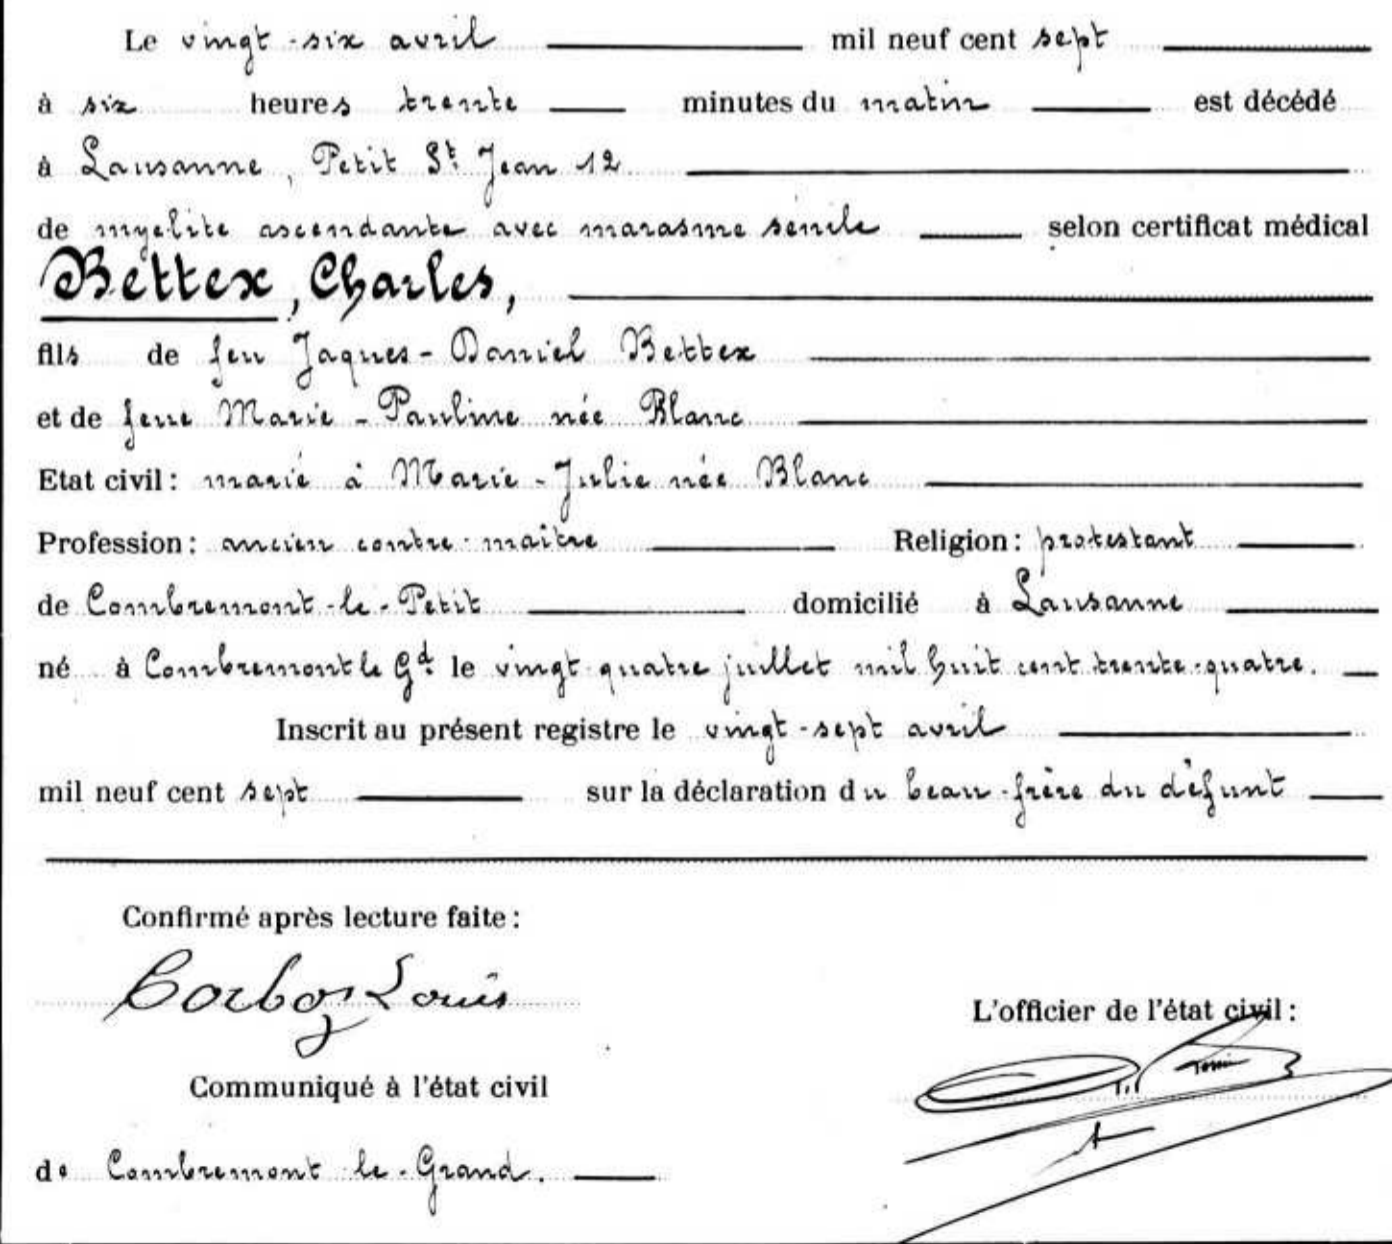 Le vingt-six avril mil neuf cent sept
à six heures trente minutes du matin est décédé
à Lausanne, Petit St Jean 12
de myelite ascendante avec marasme senile selon certificat médical
Bettex, Charles,
fils de feu Jaques-Daniel Bettex
et de feue Marie-Pauline née Blanc
Etat civil: marié à Marie-Julie née Blanc
Profession: ancien contre-maître Religion: protestant
de Combremont-le-Petit domicilié à Lausanne
né à Combremont le Gd le vingt-quatre juillet mil huit cent trente-quatre.
Inscrit au présent registre le vingt-sept avril
mil neuf cent sept sur la déclaration du beau-frère du défunt
Confirmé après lecture faite:
Corboz Louis
L'officier de l'état civil:
Communiqué à l'état civil
de Combremont-le-Grand.